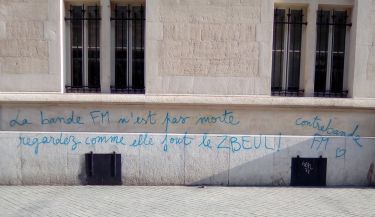 La bande FM n'est pas morte
regardez comme elle fout le ZBEUL!
contrebande
FM